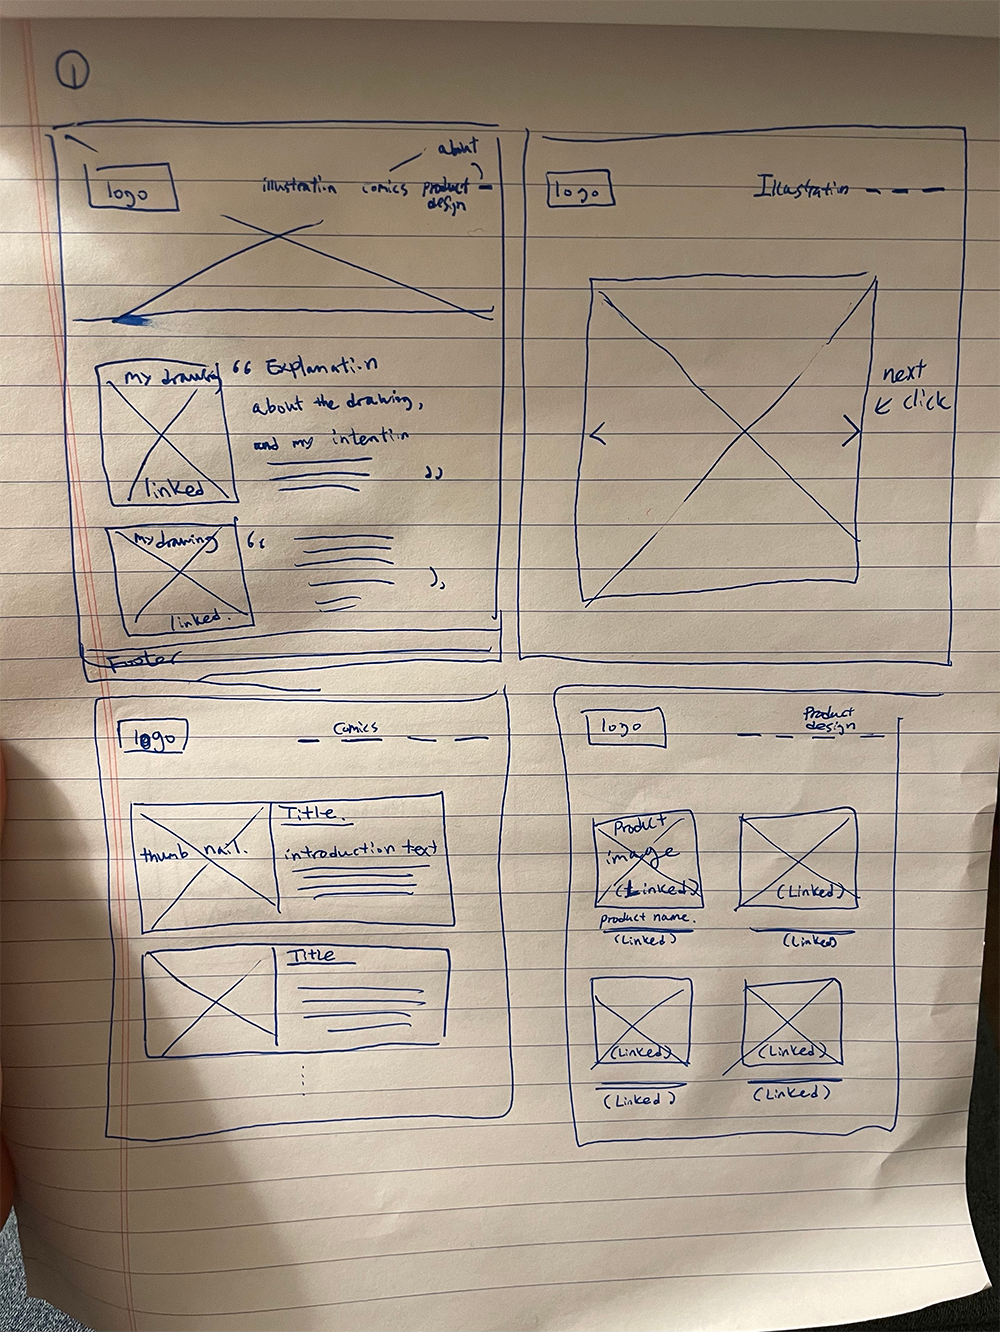 1
about
logo
illustration comics product
design
my drawing
linked
“ Explanation
about the drawing,
and my intention
”
my drawing
linked.
“
”
Footer
logo
Illustration
next
click
logo
Comics
thumb nail.
Title.
introduction text
Title
logo
Product
design
Product
image
(Linked)
product name.
(Linked)
(Linked)
(Linked)
(Linked)
(Linked)
(Linked)
(Linked)